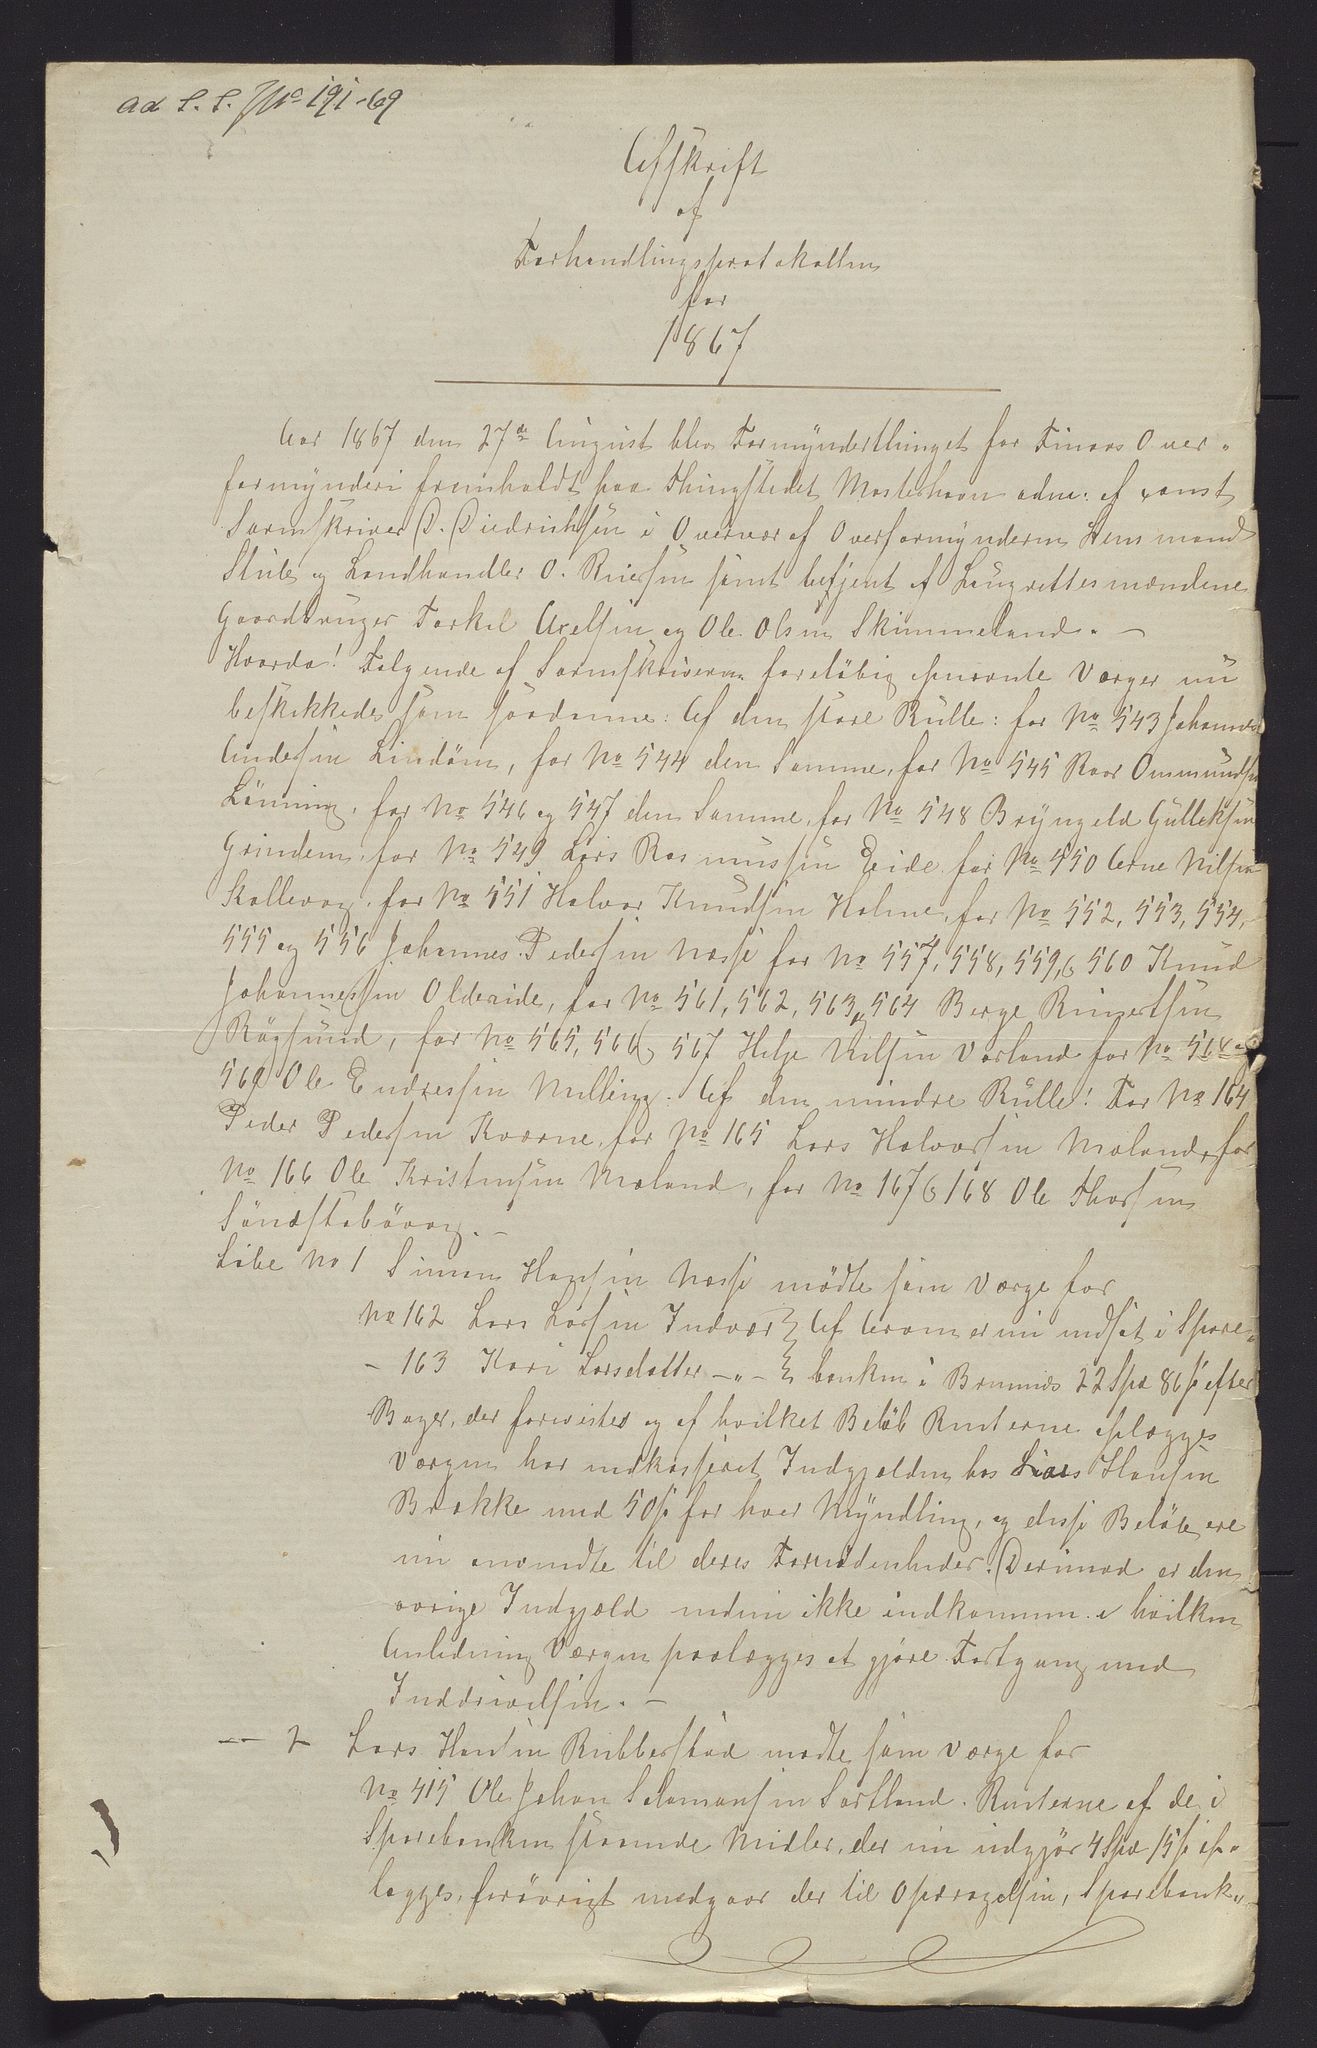 ad S. S. No 191-69
Afskrift
af
Forhandlingsprotokollen
for
1867
Aar 1867 den 27de August blev Formynderthinget for Finaas Over-
formynderi fremholdt paa Thingstedet Mosterhavn adm: af const
Sorenskriver D. Diedrichsen i Overvær af Overformynderne Lensmand
Stub og Landhandler O. Riiersen samt betjent af Laugrettesmændene
Gaardbruger Torkel Axelsen og Ole Olsen Skimmeland. —
Hvorda! Følgende af Sorenskriveren foreløbig opnævnte Værger nu
beskikkedes som saadanne: Af den store Rulle: for No 543 Johannes
Andersen Lindøen, for No 544 den Samme, for No 545 Roar Ommundsen
Lønning, for No 546 og 547 den Samme, for No 548 Bryngeld Gulleksen
Grindem, for No 549 Lars Rasmussen Eide, for No 550 Arne Nilsen
Kallevaag, for No 551 Halvor Knudsen Holme, for No 552, 553, 554,
555 og 556 Johannes Pedersen Næsse for No 557, 558, 559, & 560 Knud
Johannessen Oldereide, for No 561, 562, 563 og 564 Berge Rinertsen
Røgsund, for No 565, 566 & 567 Helje Nilsen Vorland for No 568 og
569 Ole Endresen Melling. Af den mindre Rulle! For No 164
Peder Pedersen Kværne, for No 165 Lars Halvorsen Moland, for
No 166 Ole Kristensen Moland, for No 167 & 168 Ole Thorsen
Sønstabøvog. —
Løbe No 1 Simon Hansen Næsse mødte som Værge for
No 162 Lars Larsen Indvær } Af Arven er nu indsat i Spare-
- 163 Kari Larsdatter —„— } banken i Bremnes 22 Spd 86 ß efter
Bøger, der forevistes og af hvilket Beløb Renterne oplægges
Værgen har indkasseret Indgjælden hos Lars Hansen
Brakke med 50 ß for hver Myndling, og disse Beløb ere
nu anvendte til deres Fornødenheder. Derimod er den
øvrige Indgjæld endnu ikke indkommen i hvilken
Anledning Værgen paalægges at gjøre Fortgang med
Inddrivelsen. —
— 2 Lars Hansen Rubbestad mødte som Værge for
No 415 Ole Johan Salamonsen Sortland. Renterne af de i
Sparebanken staaende Midler, der nu udgjør 4 Spd 15 ß op-
lægges, forøvrigt medgaar der til Opdragelsen, Sparebank-